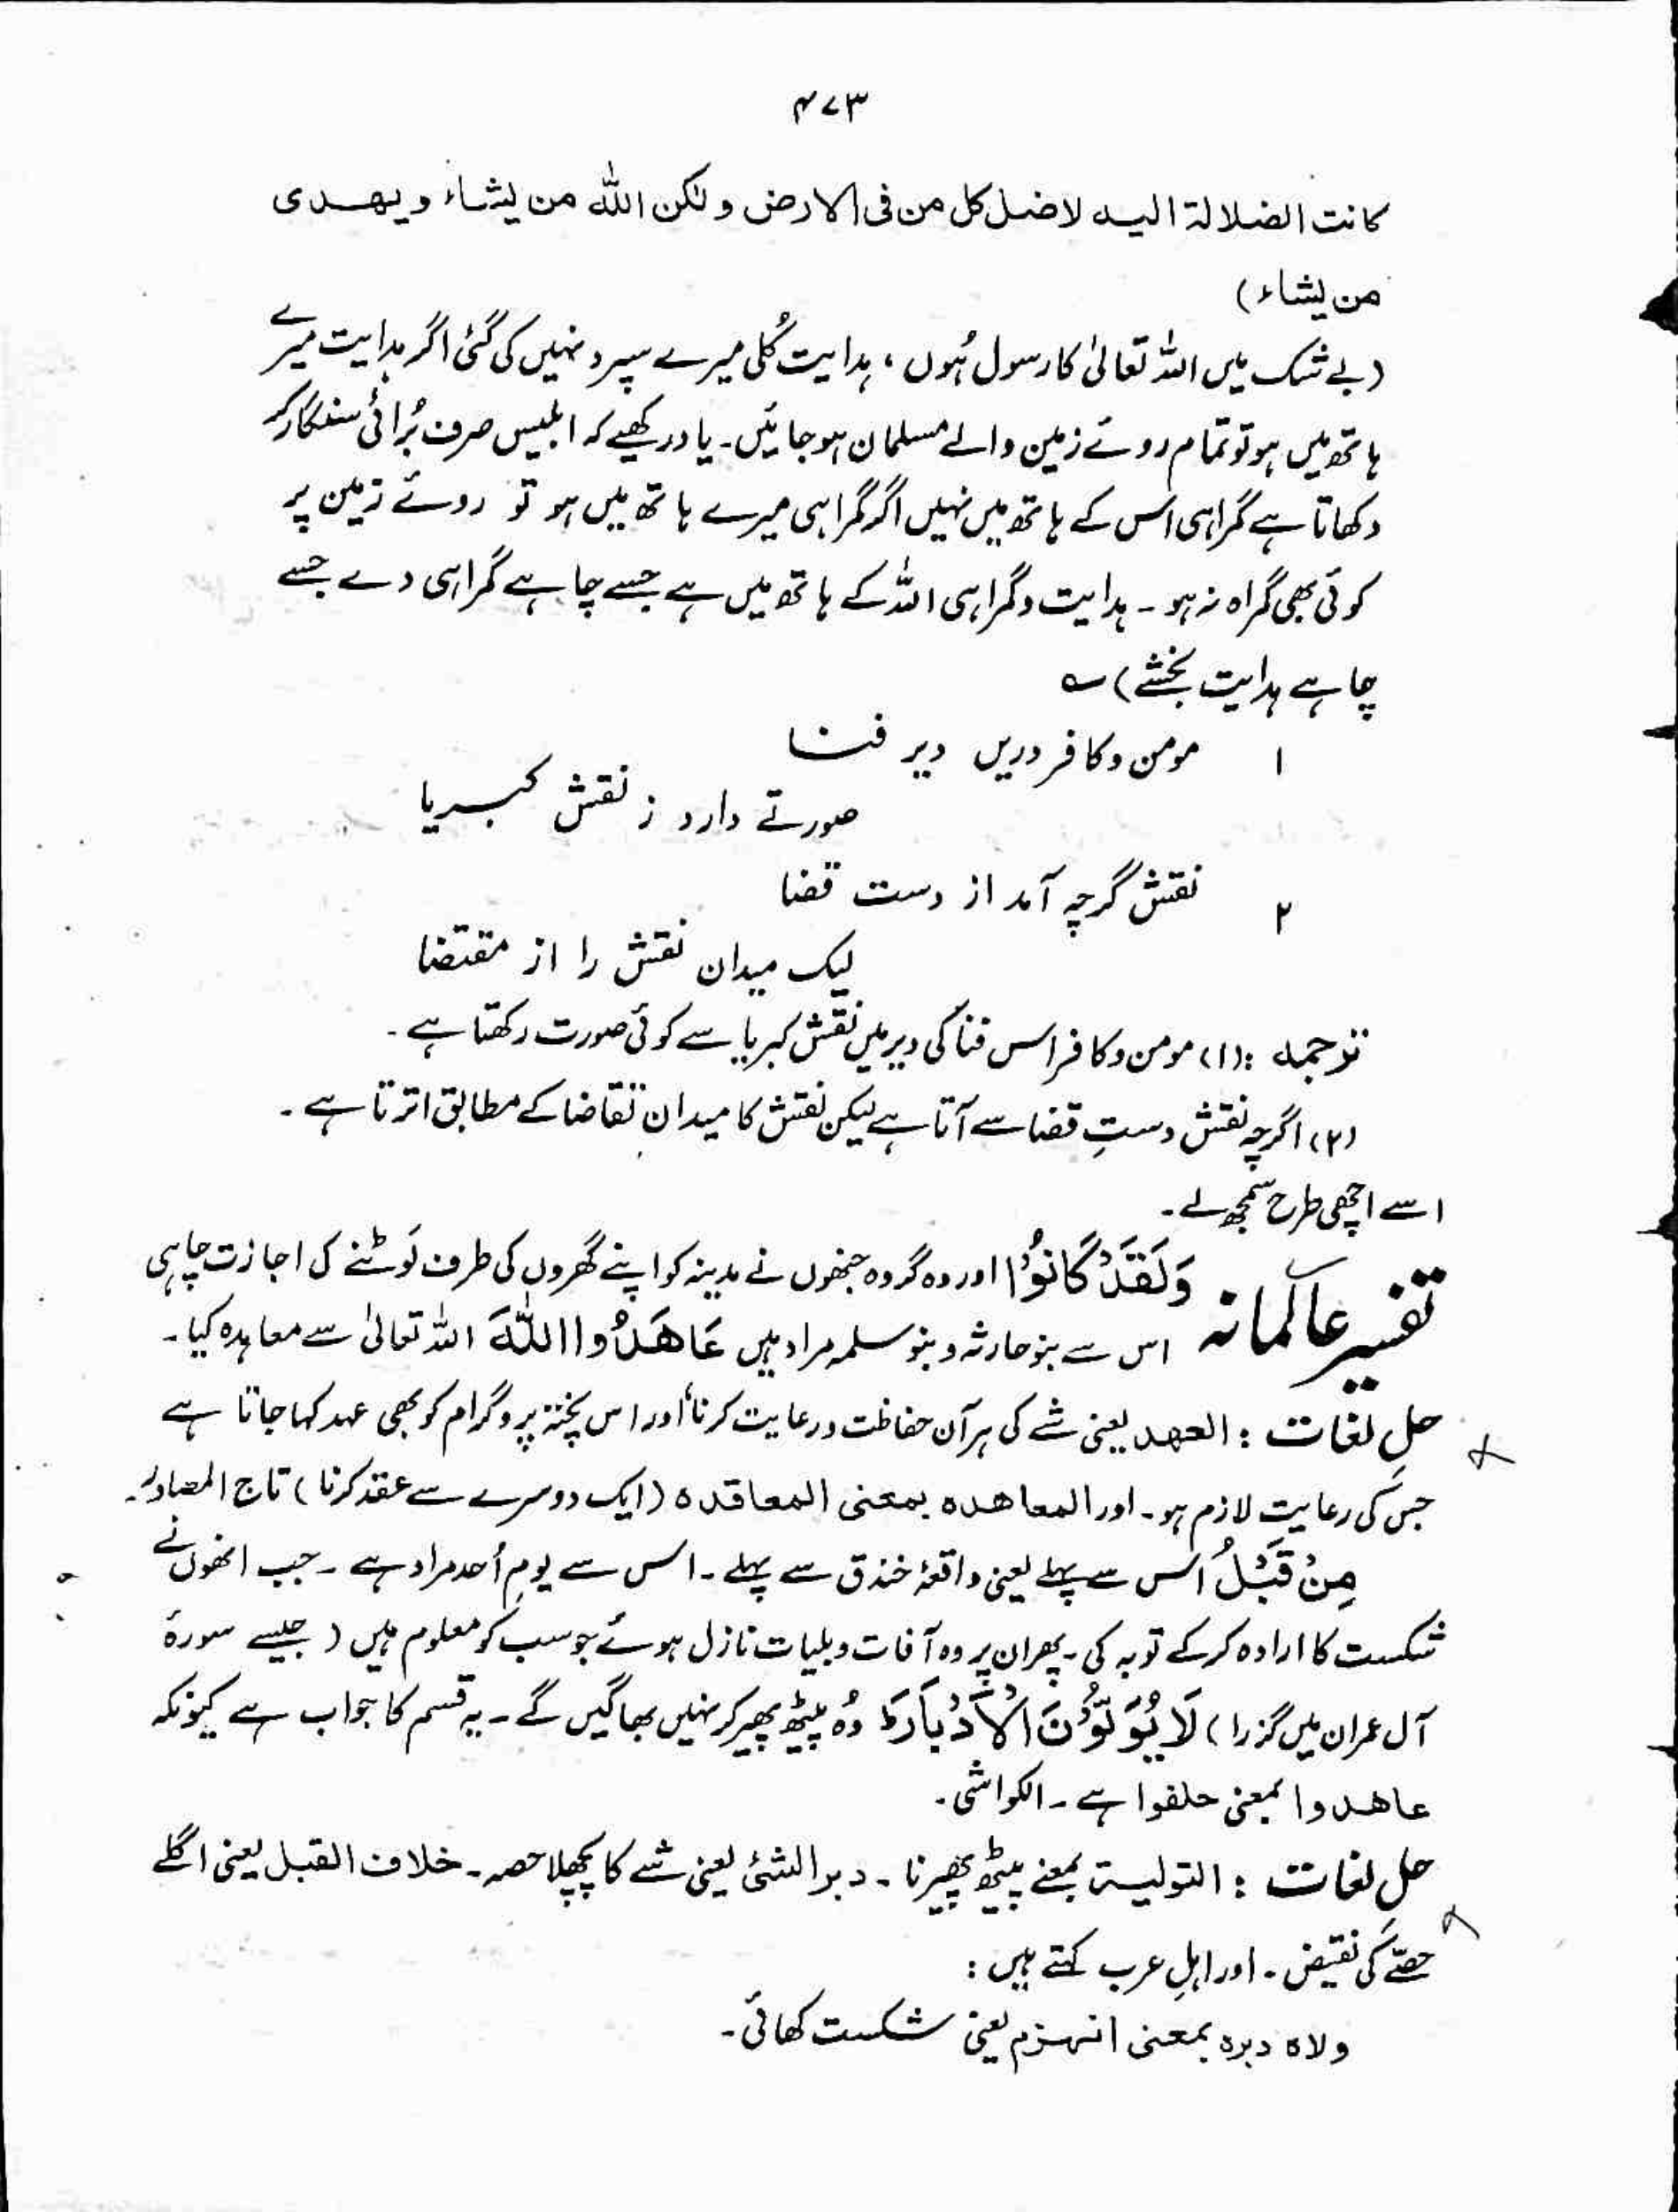 ۴۷۳
کانت الضلالة الیه لاضل کل من فی الارض ولٰکن اللہ من یشاء ویھدی
من یشاء)
(بے شک میں اللہ تعالیٰ کا رسول ہُوں ، ہدایت کُلی میرے سپرد نہیں کی گئی اگر ہدایت میرے
ہاتھ میں ہو تو تمام روئے زمین والے مسلمان ہو جائیں۔ یاد رکھیے کہ ابلیس صرف بُرائی سنگار کر
دکھاتا ہے گمراہی اس کے ہاتھ میں نہیں اگر گمراہی میرے ہاتھ میں ہو تو روئے زمین پر
کوئی بھی گمراہ نہ ہو۔ ہدایت و گمراہی اللہ کے ہاتھ میں ہے جسے چاہے گمراہی دے جسے
چاہے ہدایت بخشے) ؎
۱ مومن و کافر دریں دیر فنا
صورتے دارد ز نقش کبریا
۲ نقش گرچہ آمد از دست قضا
لیک میدان نقش را از مقتضا
ترجمہ : (۱) مومن و کافر اس فنا کی دیر میں نقش کبریا سے کوئی صورت رکھتا ہے۔
(۲) اگرچہ نقش دستِ قضا سے آتا ہے لیکن نقش کا میدان تقاضا کے مطابق اترتا ہے۔
اسے اچھی طرح سمجھ لے۔
تفسیر عالمانہ وَلَقَدْ کَانُوْا اور وہ گروہ جنھوں نے مدینہ کو اپنے گھروں کی طرف لَوٹنے کی اجازت چاہی
اس سے بنو حارثہ و بنو سلمہ مراد ہیں عَاھَدُوا اللّٰہَ اللہ تعالیٰ سے معاہدہ کیا۔
حلِ لغات : العھد یعنی شے کی ہر آن حفاظت و رعایت کرنا اور اس پختہ پروگرام کو بھی عہد کہا جاتا ہے
جس کی رعایت لازم ہو۔ اور المعاھدہ بمعنی المعاقدہ (ایک دوسرے سے عقد کرنا) تاج المصادر۔
مِنْ قَبْلُ اس سے پہلے یعنی واقعۂ خندق سے پہلے۔ اس سے یومِ اُحد مراد ہے۔ جب انھوں نے
شکست کا ارادہ کرکے توبہ کی۔ پھر ان پر وہ آفات و بلیات نازل ہوئے جو سب کو معلوم ہیں (جیسے سورۂ
آل عمران میں گزرا) لَا یُوَلُّوْنَ الْاَدْبَارَط وُہ پیٹھ پھیر کر نہیں بھاگیں گے۔ یہ قسم کا جواب ہے کیونکہ
عاھدوا بمعنی حلفوا ہے۔ الکواشی۔
حلِ لغات : التولیة بمعنے پیٹھ پھیرنا۔ دبر الشئ یعنی شے کا پچھلا حصہ۔ خلاف القبل یعنی اگلے
حصّے کی نقیض۔ اور اہلِ عرب کہتے ہیں :
ولاہ دبرہ بمعنی انھزم یعنی شکست کھائی۔